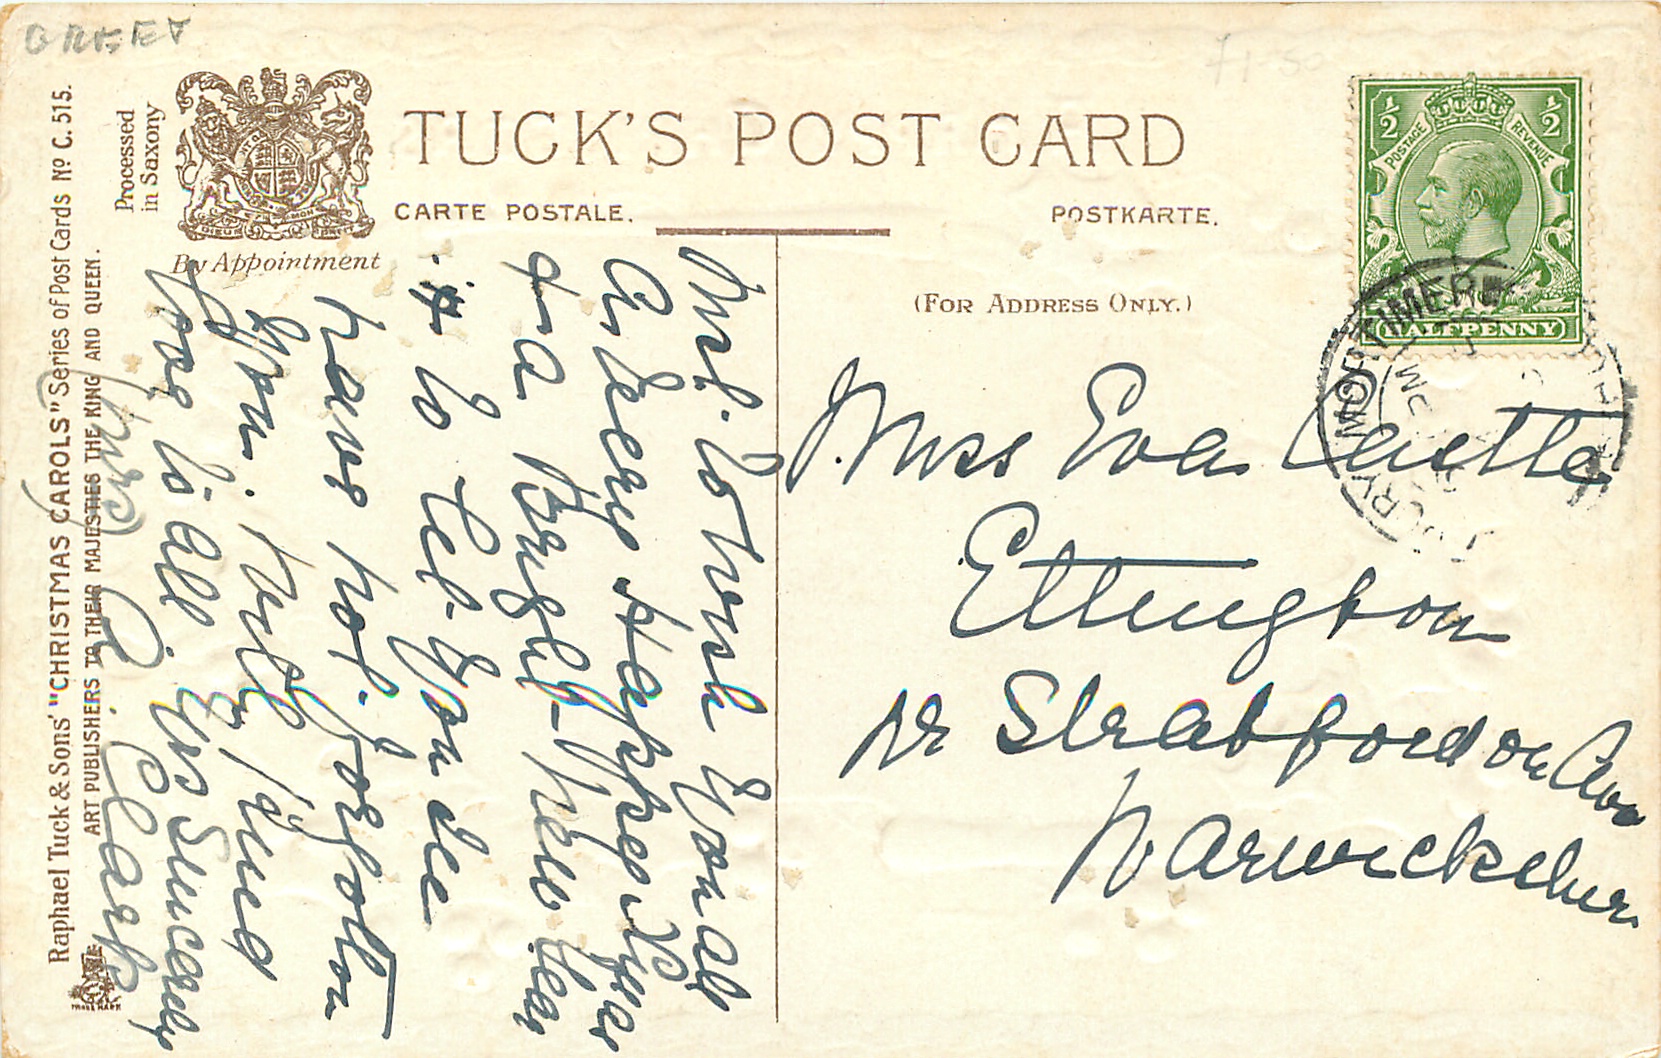 GREET
71-50
TUCK'S POST CARD
CARTE POSTALE.
POSTKARTE.
Processed
in Saxony
By Appointment
(FOR ADDRESS ONLY.)
½ ½
POSTAGE REVENUE
HALFPENNY
MORTIMER
Raphael Tuck & Sons' "CHRISTMAS CAROLS" Series of Post Cards Nº C. 515.
ART PUBLISHERS TO THEIR MAJESTIES THE KING AND QUEEN.
TRADE MARK
Miss Eva
Ettington
Nr Stratford on Avon
Warwickshire
to Wish You all
A Very Happy Xmas
& a Bright New Year
& to Let You See
have not forgotten
You.
is all. Yrs Sincerely
Clark